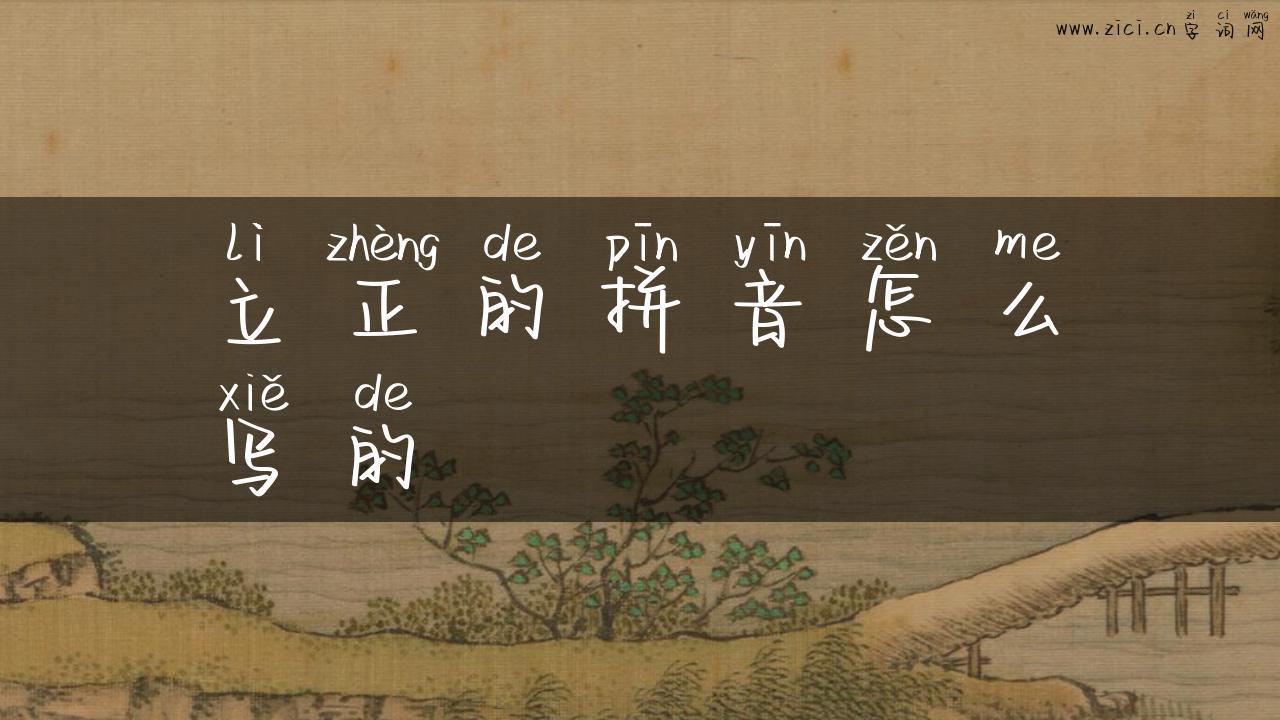 zì cí wǎng
www.zici.cn 字词网
lì zhèng de pīn yīn zěn me
立正的拼音怎么
xiě de
写的